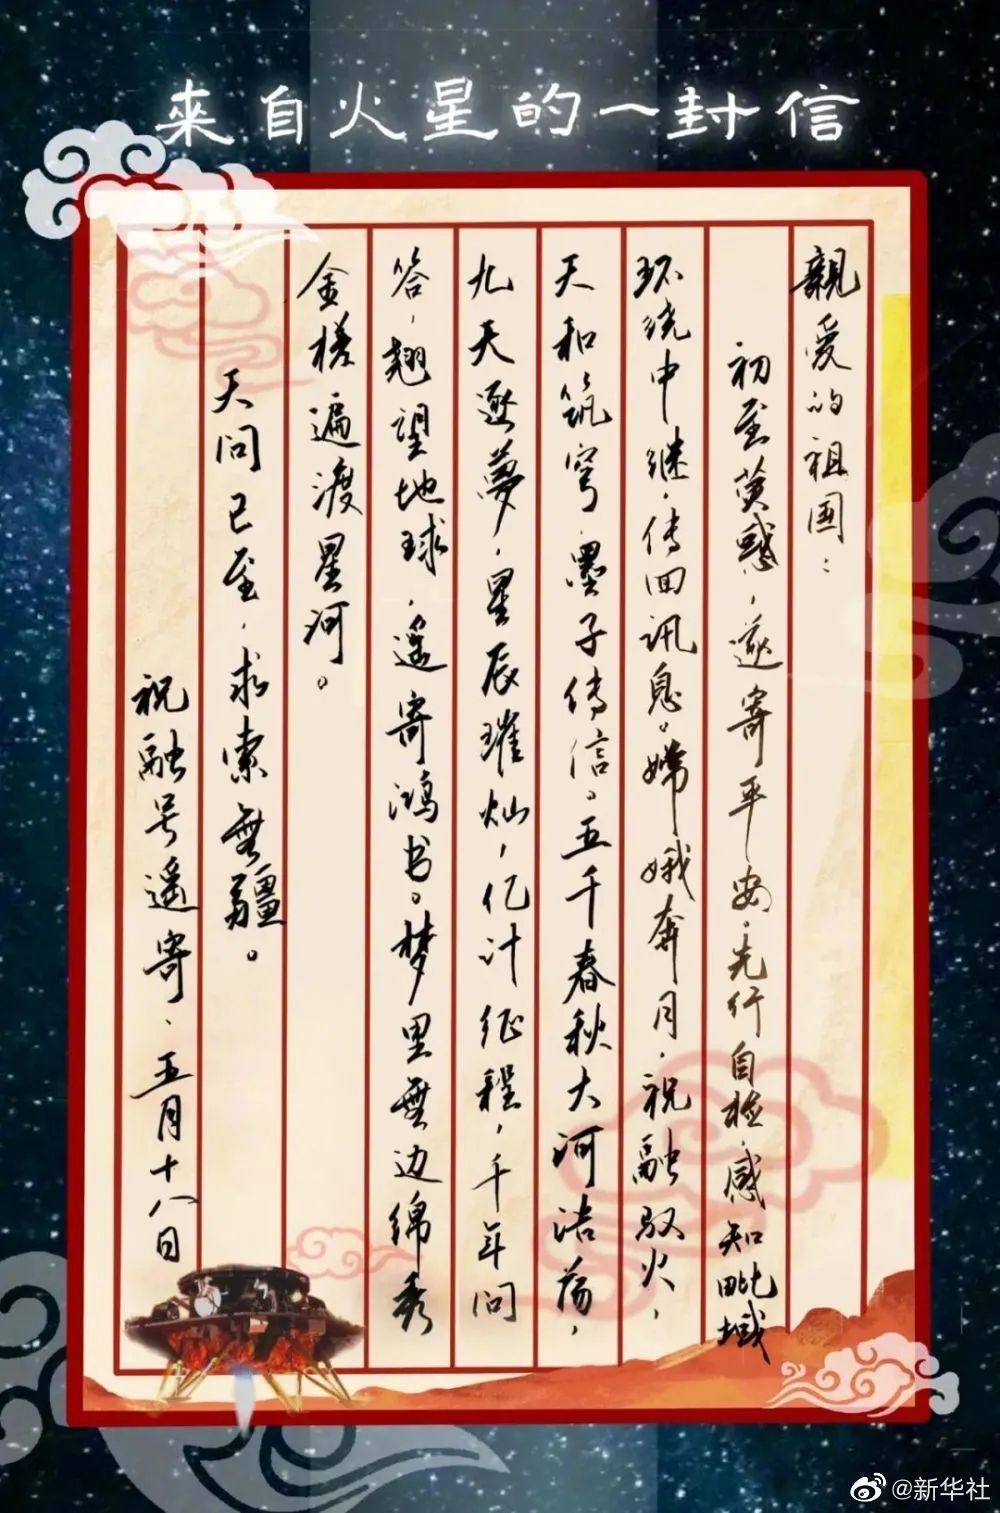 來自火星的一封信
親爱的祖国：
初至荧惑，遥寄平安。先行自检，感知毗域
环绕中继，传回讯息。嫦娥奔月，祝融驭火，
天和筑穹，墨子传信。五千春秋大河浩荡，
九天逐夢，星辰璀灿，亿计征程，千年问
答，翘望地球，遥寄鸿书。梦里無边绵秀
金槎遍渡星河。
天问已至，求索無疆。
祝融号遥寄、五月十八日
@新华社